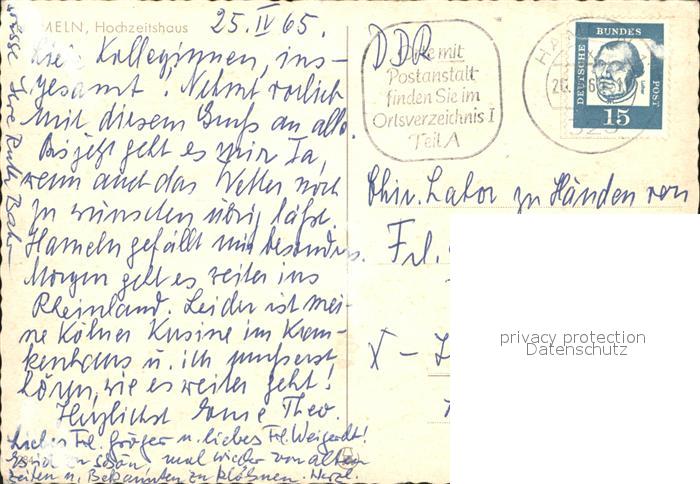 HAMELN, Hochzeitshaus
25. IV 65.
Kolleginnen, ins-
gesamt! Nehmt vorlieb
mit diesem Gruß an alle.
Bis jetzt geht es mir Ia,
wenn auch das Wetter noch
zu wünschen übrig läßt.
Hameln gefällt mir besonders.
Morgen geht es weiter ins
Rheinland. Leider ist mei-
ne Kölner Kusine im Kran-
kenhaus u. ich muß erst
hören, wie es weiter geht!
Herzlichst Theo.
Liebes Frl. Gröger u. liebes Frl. Weigerdt!
Es ist zu schön, mal wieder von alten
Zeiten u. Bekannten zu klöhnen. Herzl.
Grüße Ihre Ruth
DDR
Orte mit
Postanstalt
finden Sie im
Ortsverzeichnis I
Teil A
DEUTSCHE BUNDESPOST
15
Chir. Labor zu Händen von
Frl.
X -
privacy protection
Datenschutz